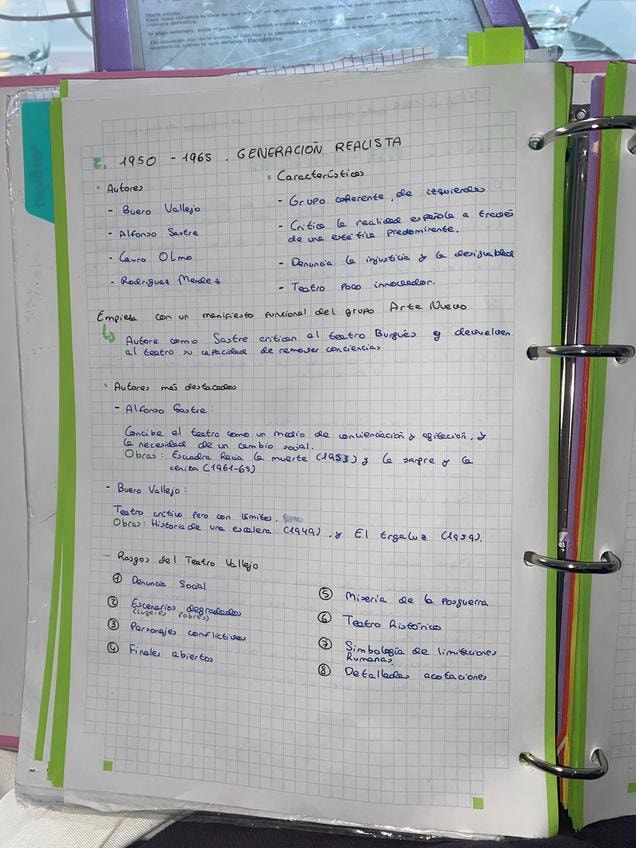 2. 1950 - 1965. GENERACIÓN REALISTA
· Autores
- Buero Vallejo
- Alfonso Sastre
- Lauro Olmo
- Rodriguez Mendez
· Características
- Grupo coherente, de izquierdas
- Critica la realidad española a través
de una estética predominente.
- Denuncia la injusticia y la desigualdad
- Teatro poco innovador.
Empieza con un manifiesto funcional del grupo Arte Nuevo
↳ Autore como Sastre critican al teatro Burgués y devuelven
al teatro su capacidad de remover conciencias
· Autores más destacados
- Alfonso Sastre:
Concibe el teatro como un medio de concienciación y agitación, y
la necesidad de un cambio social.
Obras: Escuadra hacia la muerte (1953) y la sangre y la
ceniza (1961-65)
- Buero Vallejo:
Teatro crítico pero con límites.
Obras: Historia de una escalera (1949), y El tragaluz (1959).
- Rasgos del Teatro Vallejo
① Denuncia Social
② Escenarios degradados
(lugares pobres)
③ Personajes conflictivos
④ Finales abiertos
⑤ Miseria de la Posguerra
⑥ Teatro histórico
⑦ Simbología de limitaciones
humanas.
⑧ Detalladas acotaciones